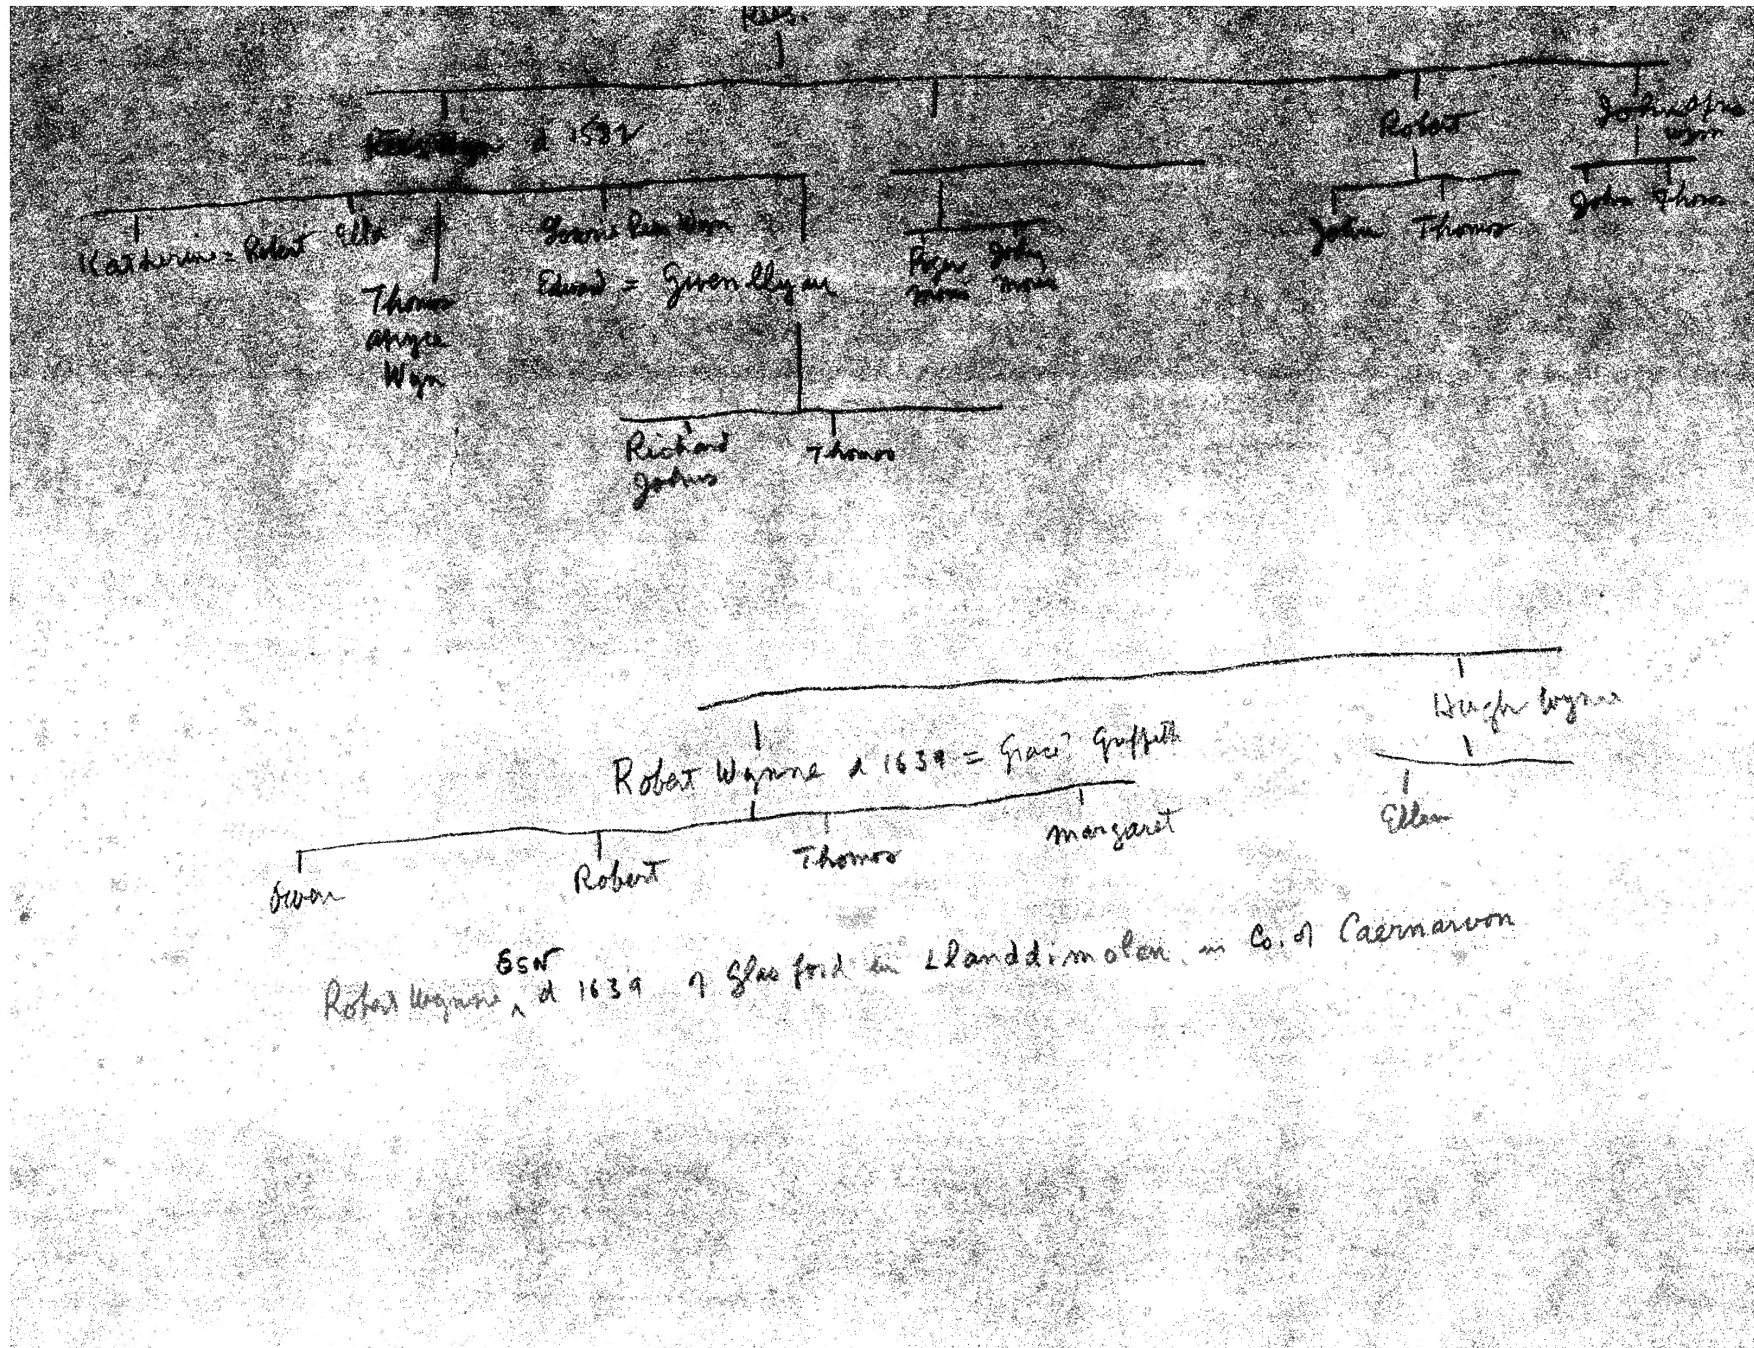 Rees.
d 1582
Robert
John
Wynn
Katherine = Robert
Thomas
apryce
Wyn
Edward = Gwenllyan
Roger
Morris
John
Morris
John Thomas
John Thomas
Richard
Johns
Thomas
Hugh Wynne
Robert Wynne d 1639 = Grace? Griffith
Ellen
Owen
Robert
Thomas
Margaret
Robert Wynne, d 1639 of Glas ford in Llanddimolen in Co. of Caernarvon